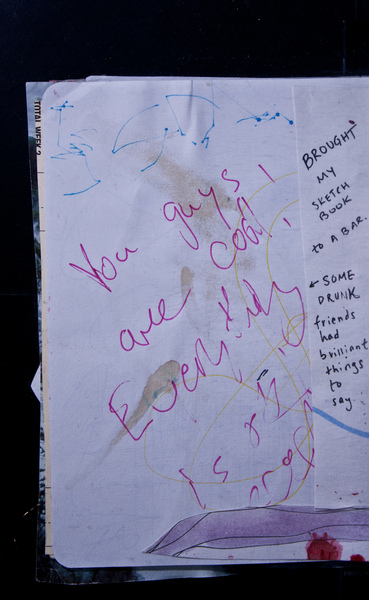 TOTAL WEEK 2
You guys
are cool!
Everybody
Is
BROUGHT
MY
SKETCH
BOOK
to A BAR.
← SOME
DRUNK
friends
had
brilliant
things
to
say